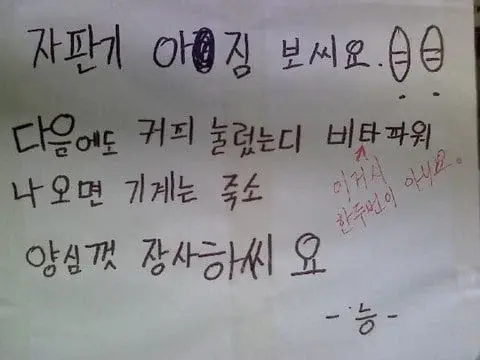 자판기 아짐 보씨요.
다음에도 커피 눌렀는디 비타파워
나오면 기계는 죽소
이거시
한두번이 아녀요.
양심껏 장사하씨요
-능-